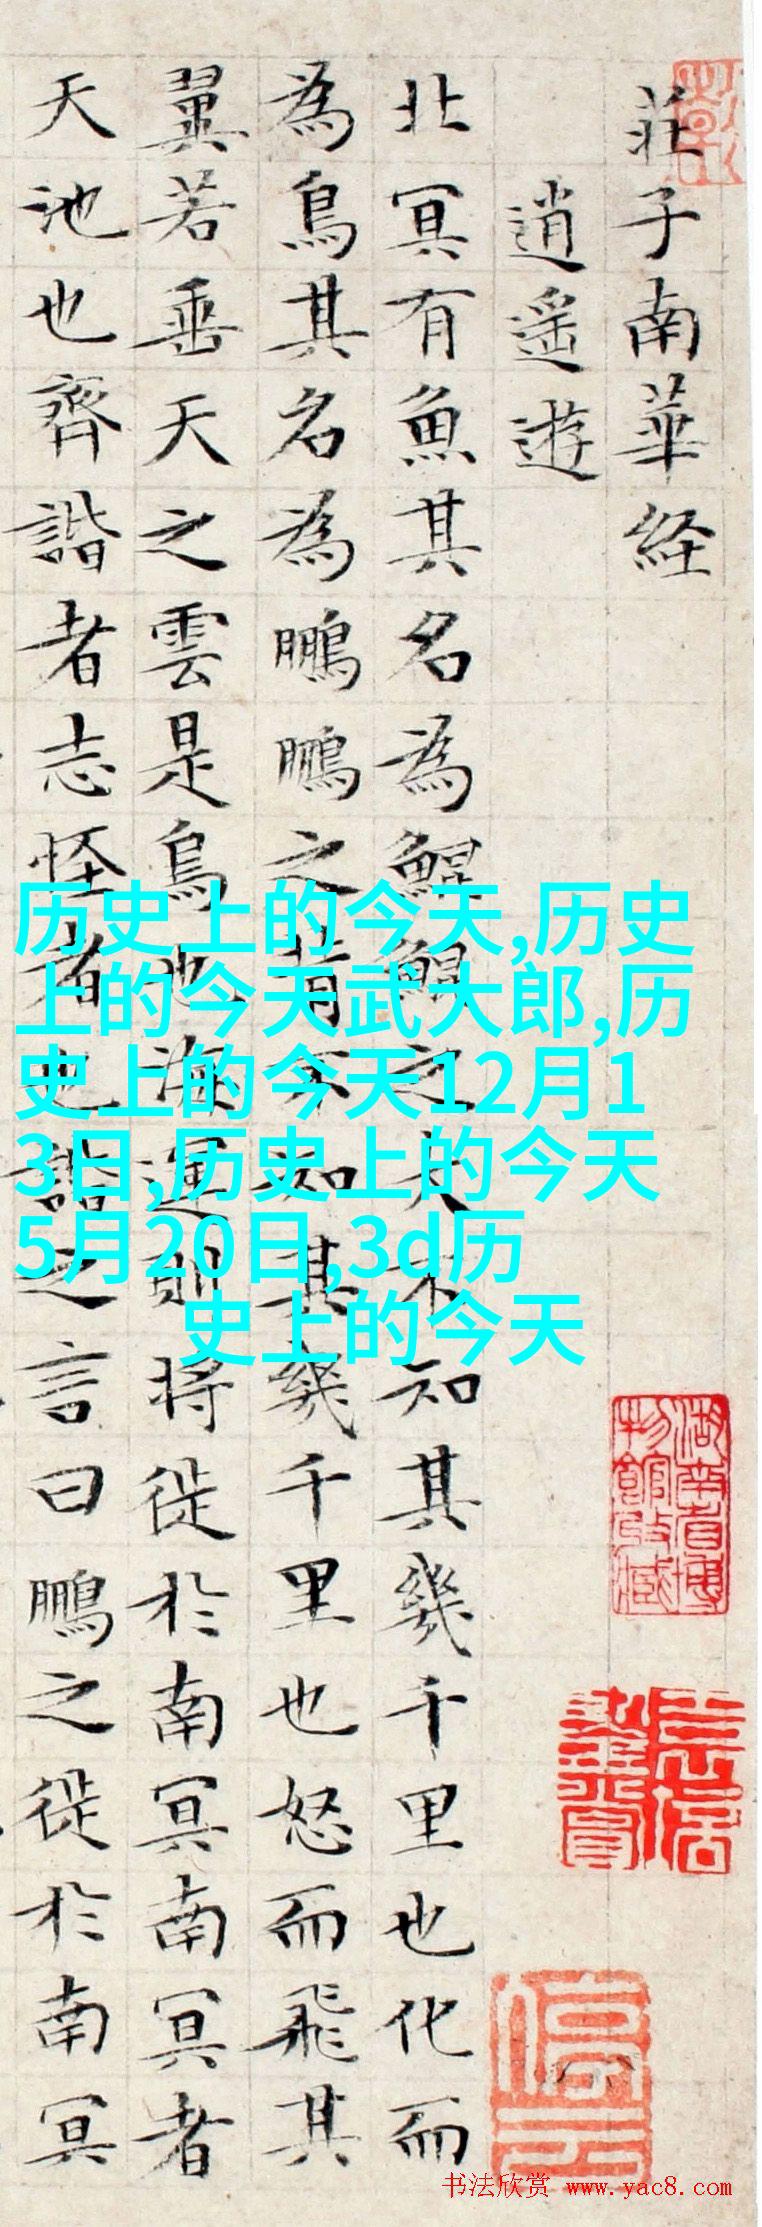 莊子南華経
逍遥遊
北冥有魚其名為鯤鯤之大不知其幾千里也化而
為鳥其名為鵬鵬之背不知其幾千里也怒而飛其
翼若垂天之雲是鳥也海運則将徙於南冥南冥者
天池也齊諧者志怪者也諧之言曰鵬之徙於南冥
历史上的今天,历史
上的今天武大郎,历
史上的今天12月1
3日,历史上的今天
5月20日,3d历
史上的今天
湖南省博
物館收藏
停云
书法欣赏 www.yac8.com